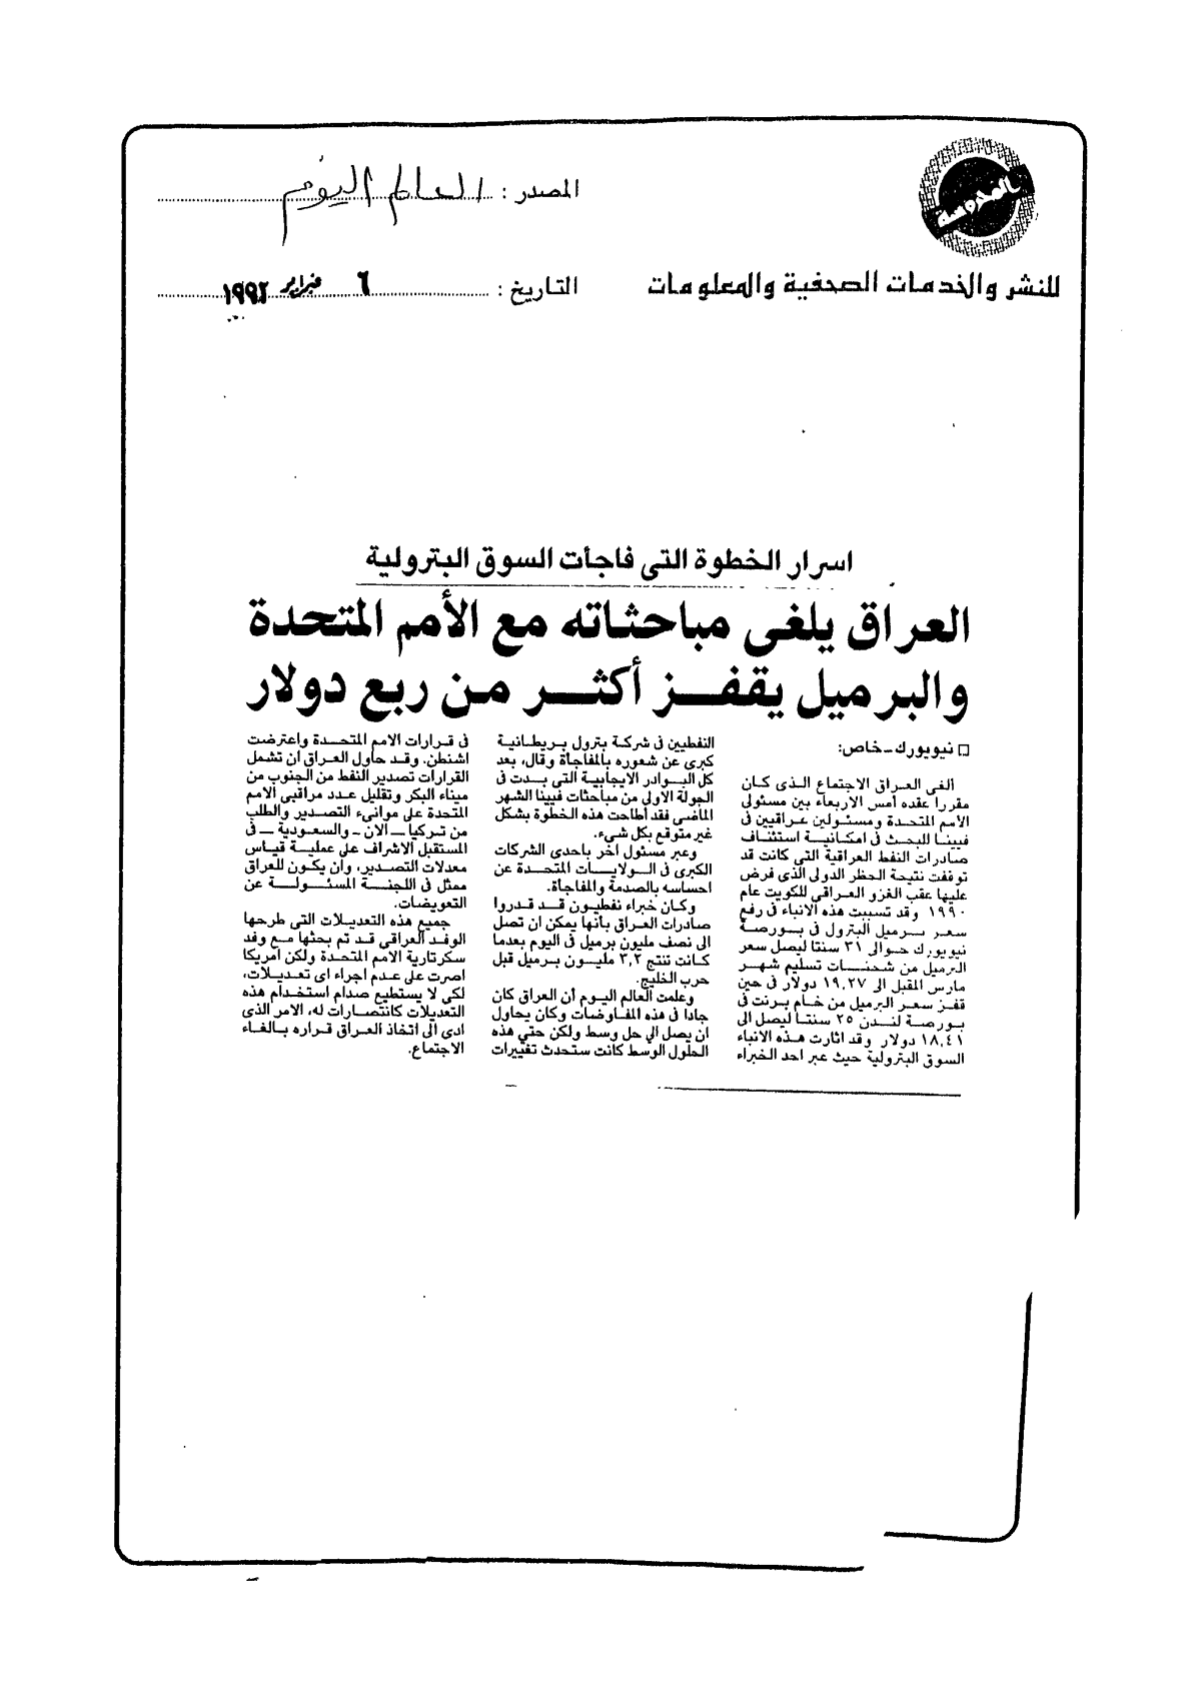 المحروسة
للنشر والخدمات الصحفية والمعلومات
المصدر : العالم اليوم
التاريخ : ٦ فبراير ١٩٩٢
اسرار الخطوة التى فاجأت السوق البترولية
العراق يلغى مباحثاته مع الأمم المتحدة
والبرميل يقفز أكثر من ربع دولار
□ نيويورك - خاص:
ألغى العراق الاجتماع الذى كان
مقررا عقده أمس الاربعاء بين مسئولى
الأمم المتحدة ومسئولين عراقيين فى
فيينا للبحث فى امكانية استئناف
صادرات النفط العراقية التى كانت قد
توقفت نتيجة الحظر الدولى الذى فرض
عليها عقب الغزو العراقى للكويت عام
١٩٩٠ وقد تسببت هذه الانباء فى رفع
سعر برميل البترول فى بورصة
نيويورك حوالى ٣١ سنتا ليصل سعر
البرميل من شحنات تسليم شهر
مارس المقبل الى ١٩,٢٧ دولار فى حين
قفز سعر البرميل من خام برنت فى
بورصة لندن ٢٥ سنتا ليصل الى
١٨,٤١ دولار وقد اثارت هذه الانباء
السوق البترولية حيث عبر احد الخبراء
النفطيين فى شركة بترول بريطانية
كبرى عن شعوره بالمفاجاة وقال، بعد
كل البوادر الايجابية التى بدت فى
الجولة الاولى من مباحثات فيينا الشهر
الماضى فقد اطاحت هذه الخطوة بشكل
غير متوقع بكل شىء.
وعبر مسئول اخر باحدى الشركات
الكبرى فى الولايات المتحدة عن
احساسه بالصدمة والمفاجاة.
وكان خبراء نفطيون قد قدروا
صادرات العراق بأنها يمكن ان تصل
الى نصف مليون برميل فى اليوم بعدما
كانت تنتج ٣,٢ مليون برميل قبل
حرب الخليج.
وعلمت العالم اليوم أن العراق كان
جادا فى هذه المفاوضات وكان يحاول
ان يصل الى حل وسط ولكن حتى هذه
الحلول الوسط كانت ستحدث تغييرات
فى قرارات الامم المتحدة واعترضت
اشنطن. وقد حاول العراق ان تشمل
القرارات تصدير النفط من الجنوب من
ميناء البكر وتقليل عدد مراقبى الامم
المتحدة على موانىء التصدير والطلب
من تركيا - الان - والسعودية - فى
المستقبل الاشراف على عملية قياس
معدلات التصدير، وان يكون للعراق
ممثل فى اللجنة المسئولة عن
التعويضات.
جميع هذه التعديلات التى طرحها
الوفد العراقى قد تم بحثها مع وفد
سكرتارية الأمم المتحدة ولكن امريكا
اصرت على عدم اجراء اى تعديلات،
لكى لا يستطيع صدام استخدام هذه
التعديلات كانتصارات له، الامر الذى
ادى الى اتخاذ العراق قراره بالغاء
الاجتماع.